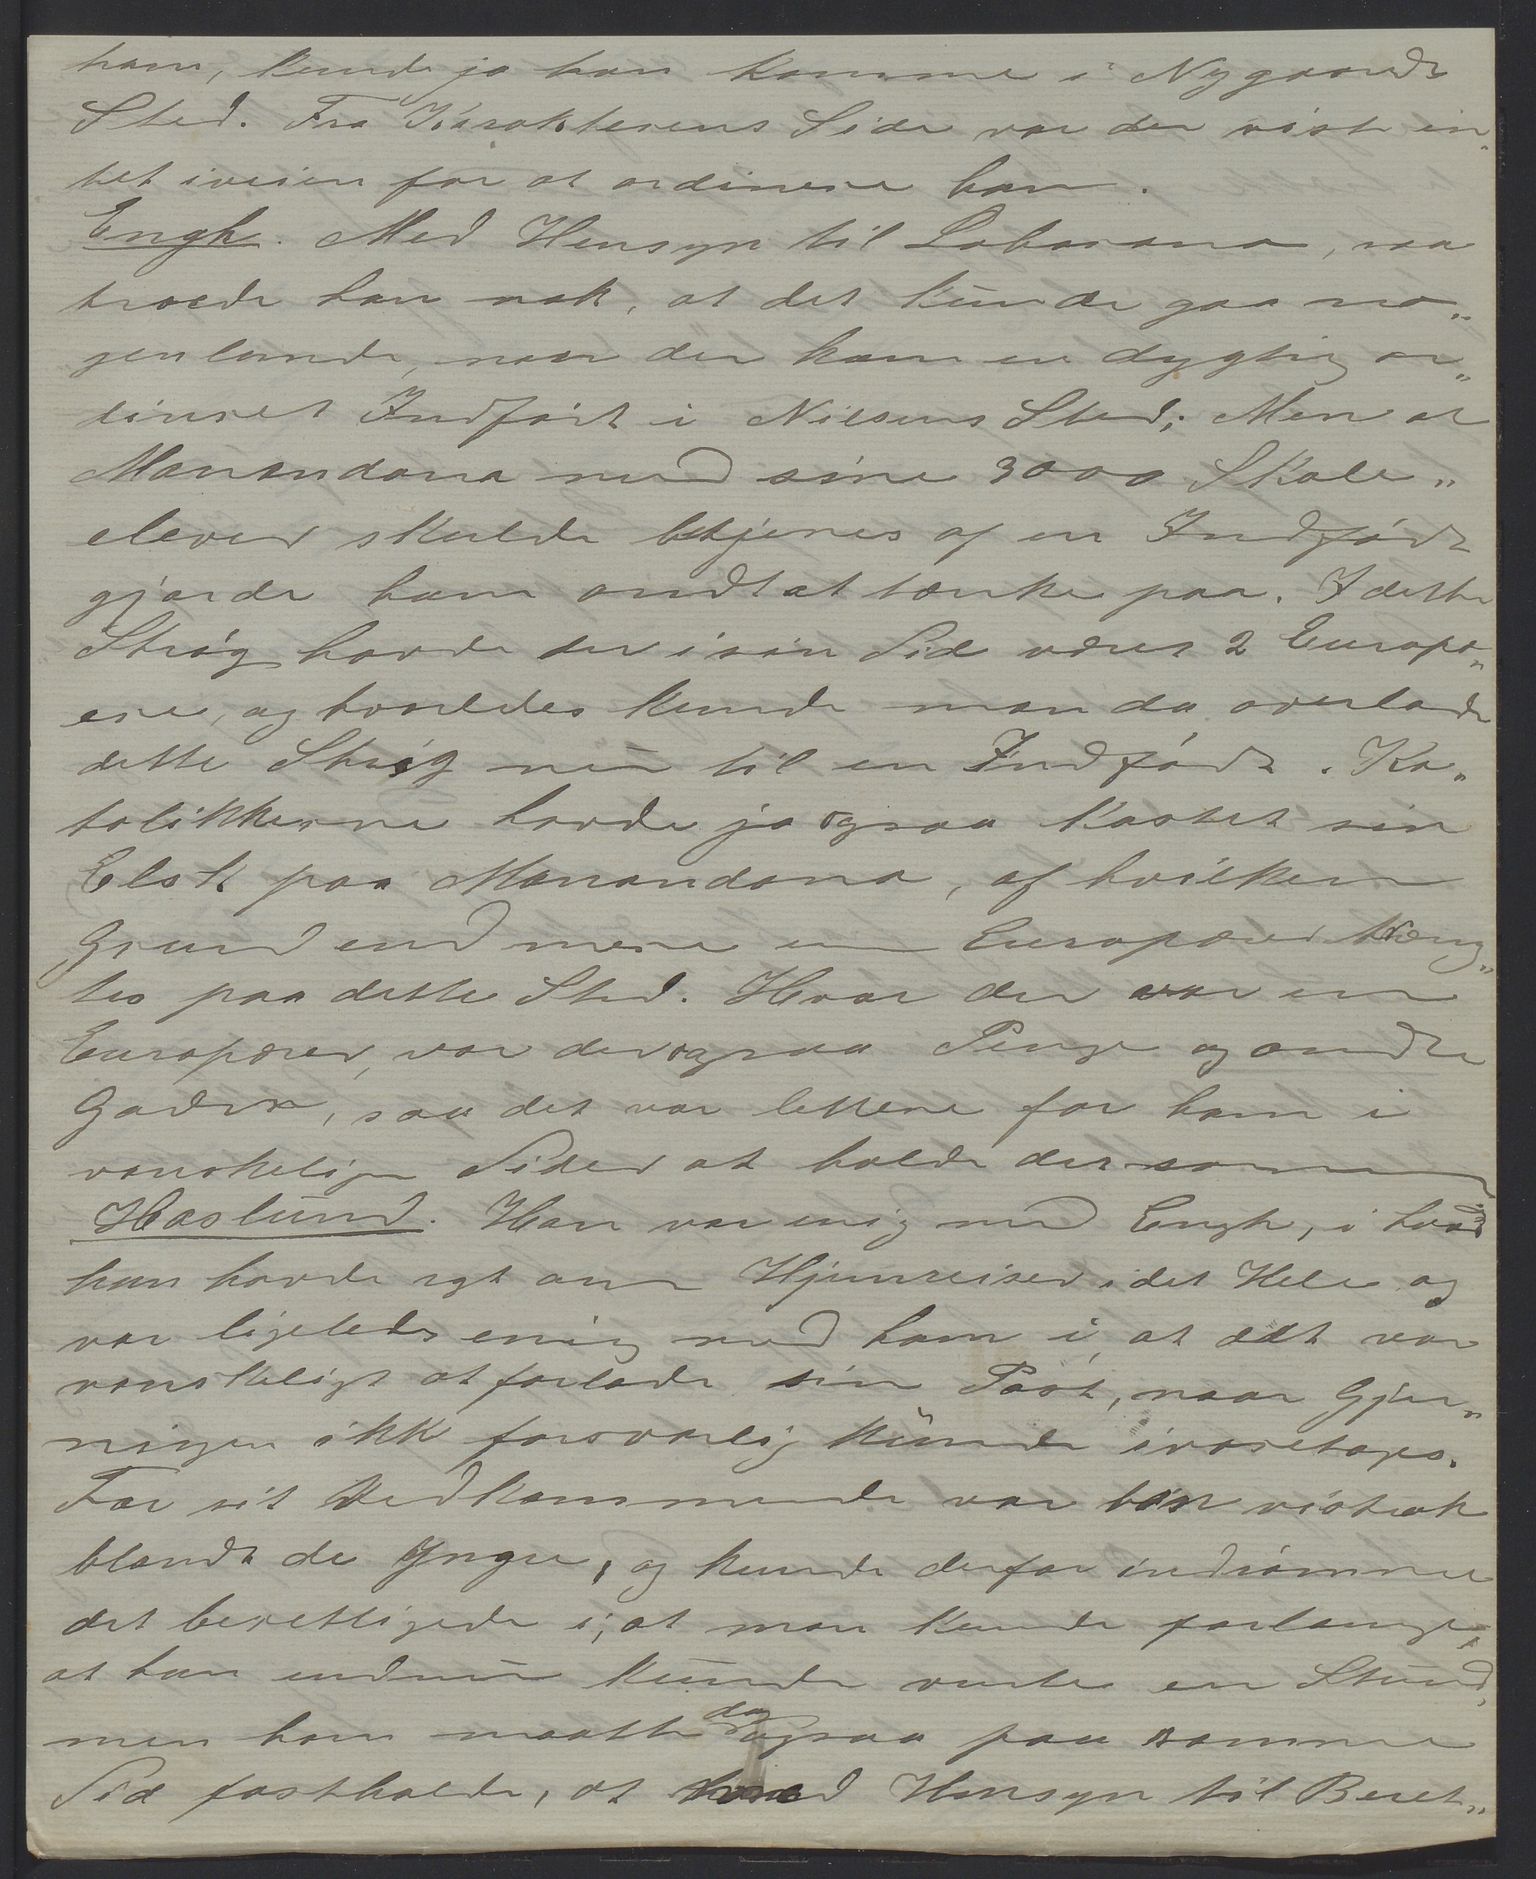 ham, kunde jo han komme i Nygaards
Sted. Fra Karakterens Side var der vist in„
tet iveien for at ordinere ham.
Engh. Med Hensyn til Loharano, saa
troede han nok, at det kunde gaa no„
genlunde, naar der kom en dygtig or„
dineret Indfødt i Nilsens Sted; Men at
Manandona med sine 3000 Skole„
elever skulde betjenes af en Indfødt
gjorde ham ondt at tænke paa. I dette
Strøg havde der i sin Tid været 2 Europæ„
ere, og hvorledes kunde man da overlade
dette Strøg nu til en Indfødt. Ka„
tolikkerne havde jo ogsaa kastet sin
Elsk paa Manandona, af hvilken
Grund end mere en Europæer træng„
tes paa dette Sted. Hvor der var en
Europæer, var der ogsaa Penge og andre
Goder, saa det var lettere for ham i
vanskelige Tider at holde det sammen
Haslund. Han var enig med Engh, i hvad
han havde sagt om Hjemreiser i det Hele og
var ligeledes enig med ham i, at det var
vanskeligt at forlade sin Post, naar Gjer„
ningen ikke forsvarlig kunde ivaretages.
For sit Vedkommende var han vistnok
blandt de Yngre, og kunde derfor indrømme
det berettigede i, at man kunde forlange,
at han endnu kunde vente en Stund,
men han maatte dog ogsaa paa samme
Tid fastholde, at med Hensyn til Beret„